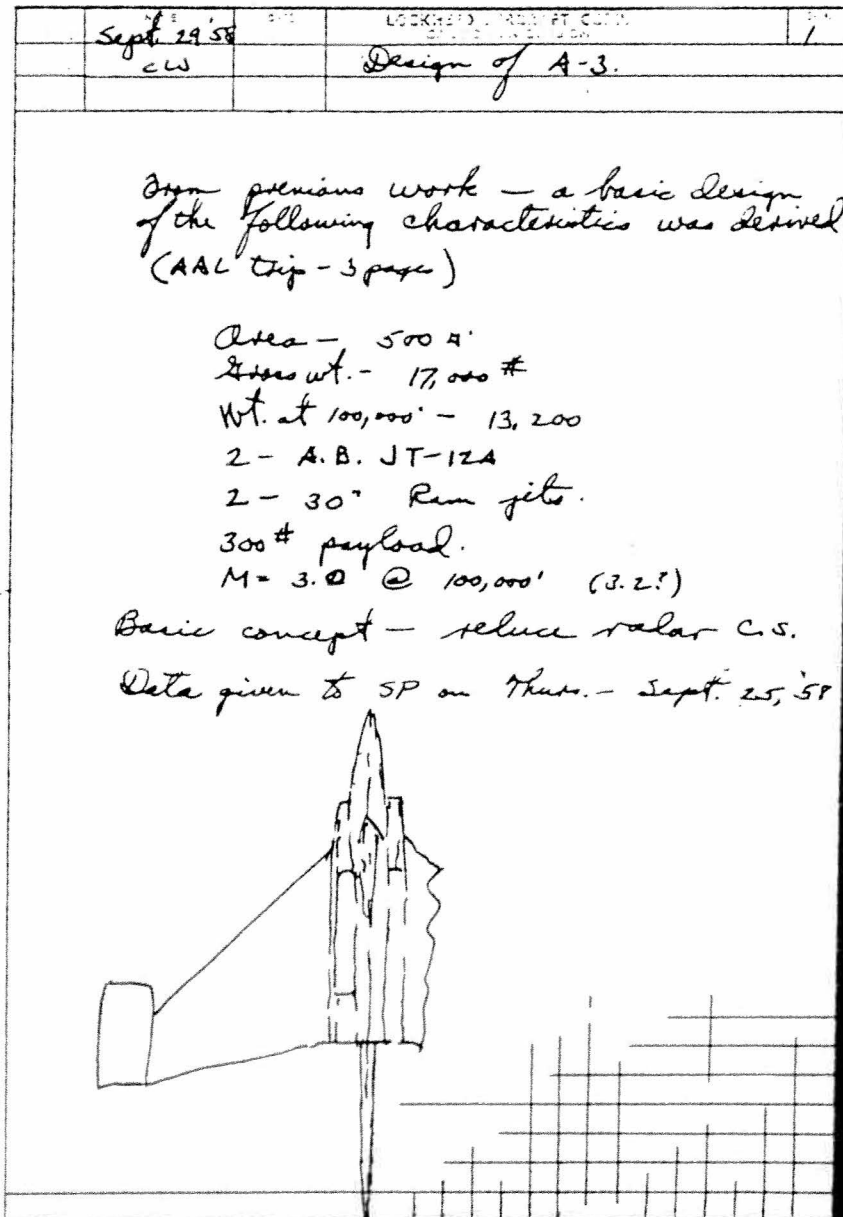 LOCKHEED AIRCRAFT CORP.
Sept. 29 '58
1
CW
Design of A-3.
From previous work — a basic design
of the following characteristics was derived
(AAL trip - 3 pages)
Area — 500 ⏍'
Gross wt. - 17,000 #
Wt. at 100,000' - 13,200
2 - A.B. JT-12A
2 - 30" Ram jets.
300 # payload.
M = 3.0 @ 100,000' (3.2?)
Basic concept — reduce radar c.s.
Data given to SP on Thurs. - Sept. 25, '58